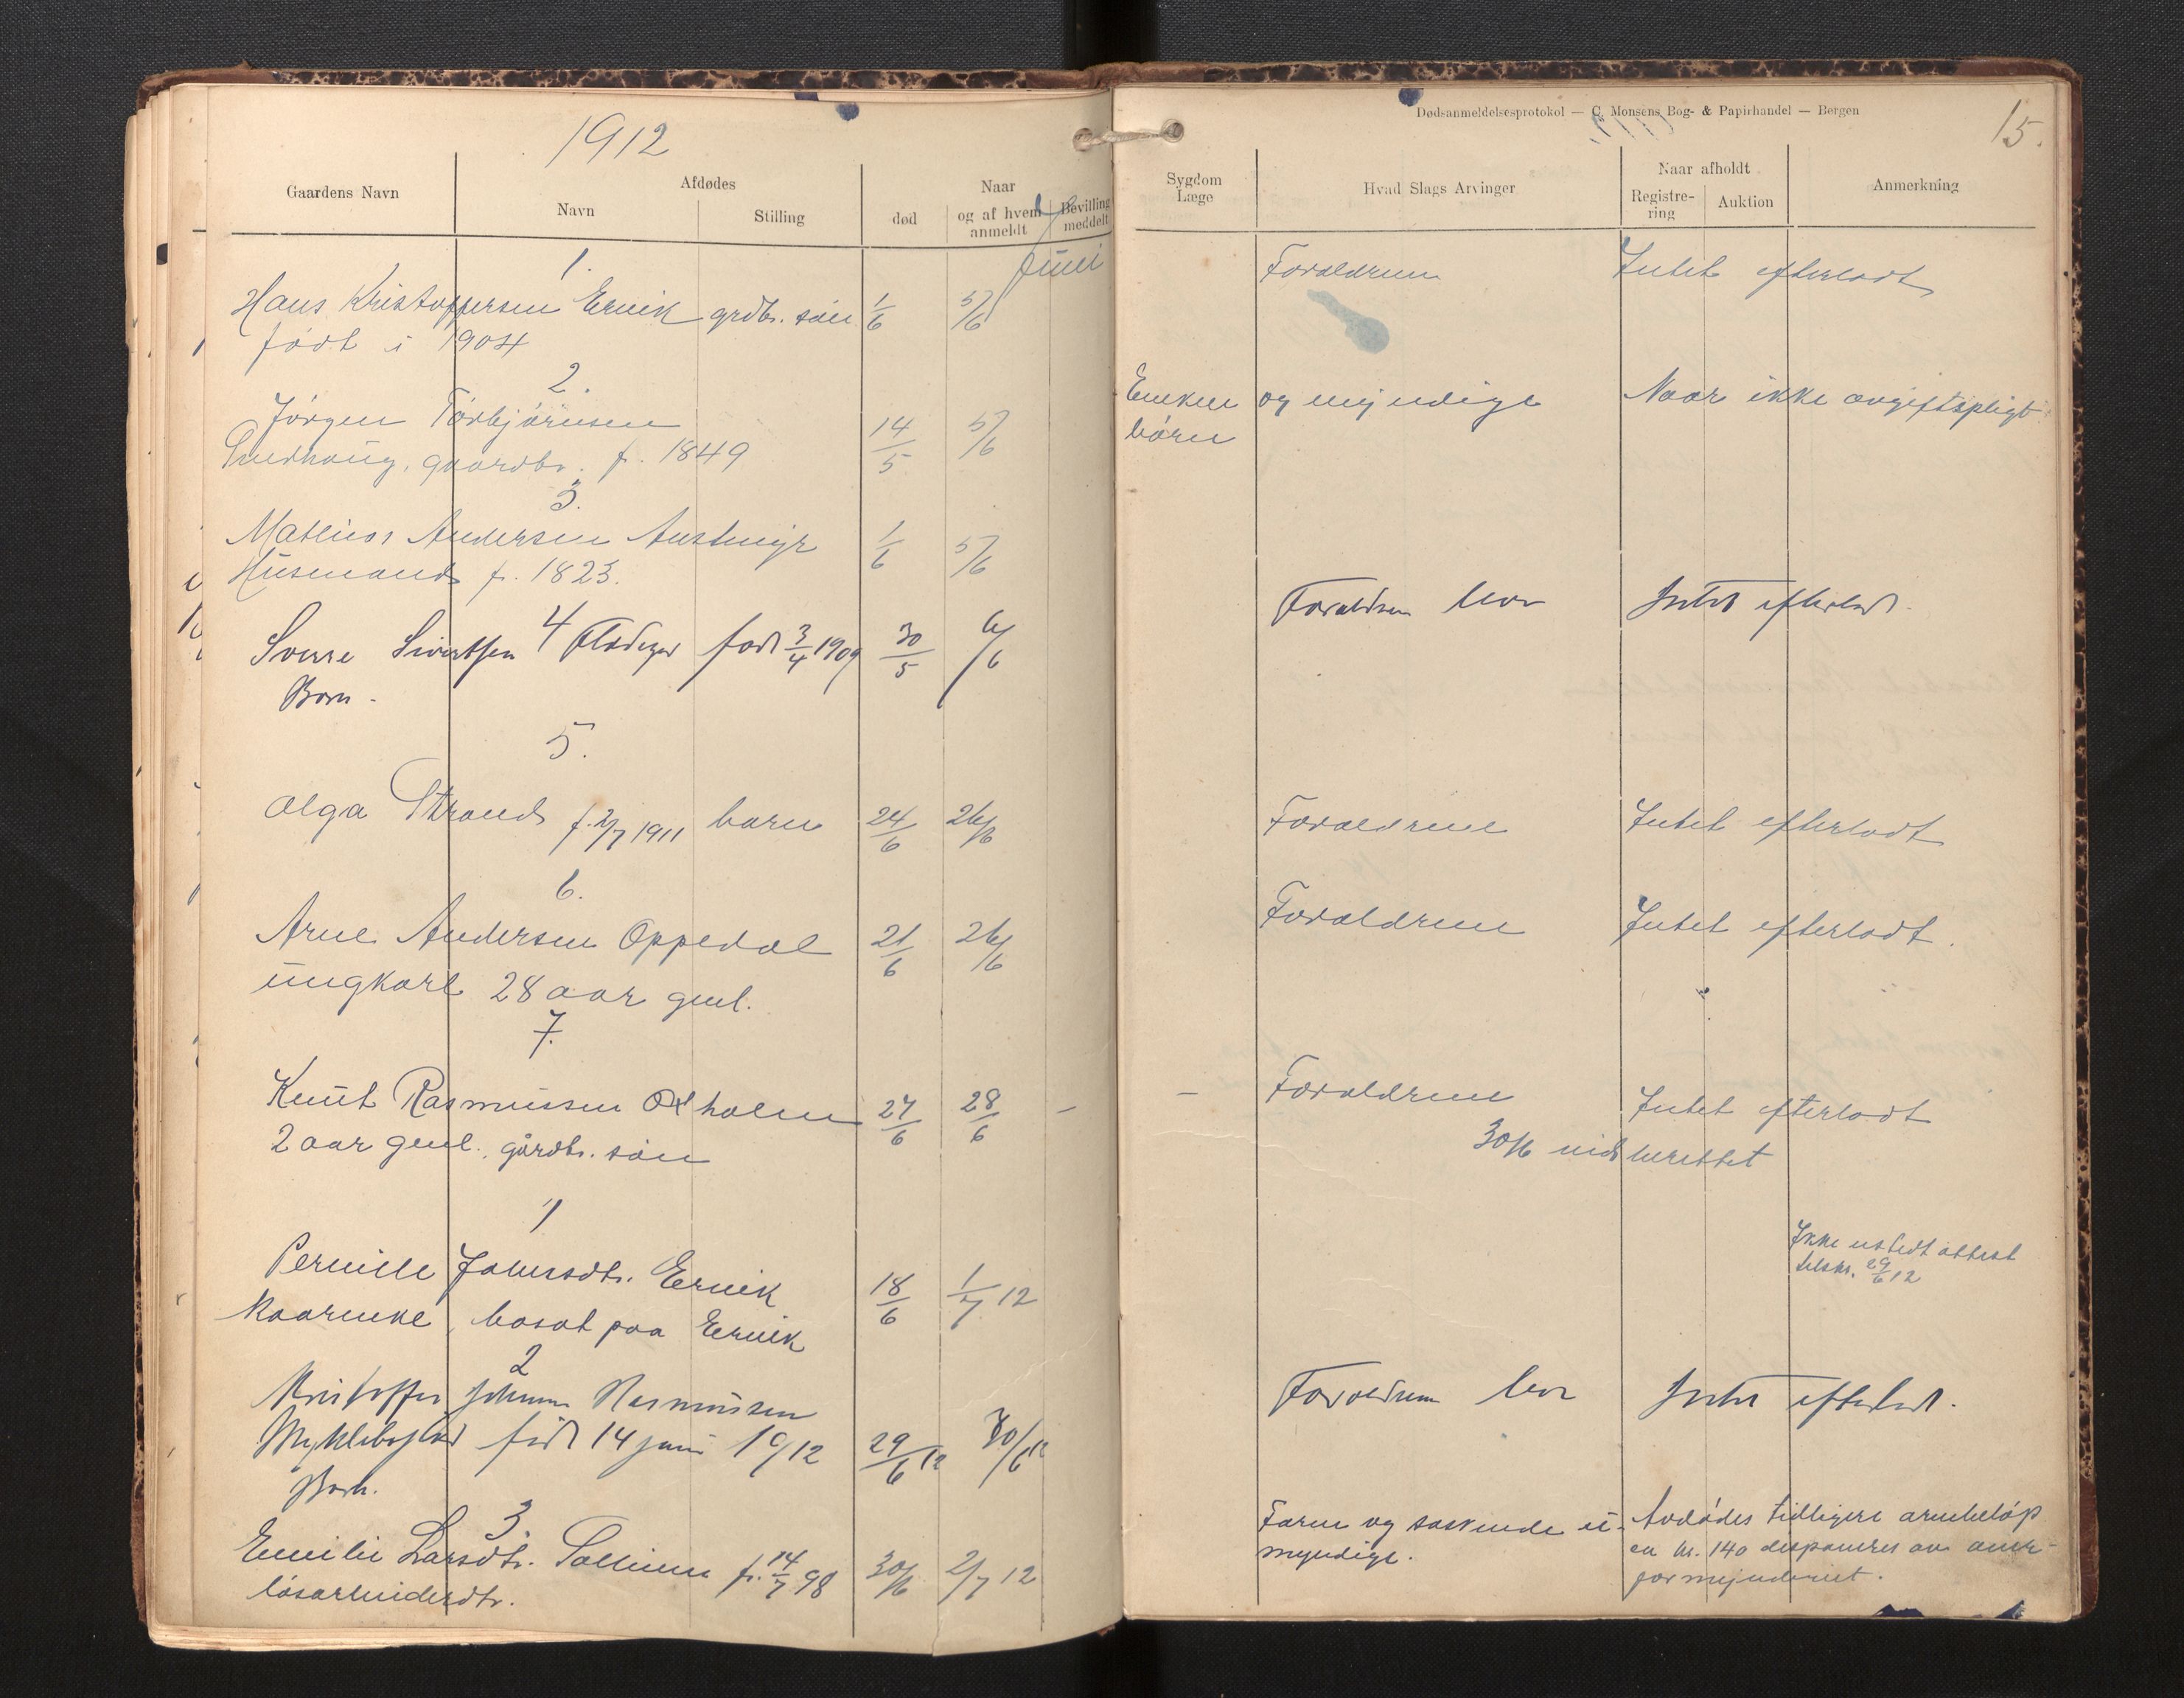 1912
Dødsanmeldelsesprotokol — C. Monsens Bog- & Papirhandel — Bergen
15.
Gaardens Navn
Afdødes
Navn
Stilling
Naar
død
og af hvem anmeldt
Bevilling meddelt
Sygdom
Læge
Hvad Slags Arvinger
Naar afholdt
Registre-
ring
Auktion
Anmerkning
Juni
1.
Hans Kristoffersen Ervik grdbr. søn 1/6 5/6 Forældrene Intet efterladt
født i 1904
2.
Jørgen Torbjørnsen 14/5 5/6 Enken og myndige Naar ikke avgiftspligt
gaardbr. f. 1849 børn
3.
Mathias Andersen 1/6 5/6
Husmand f. 1823.
4
Sverre Sivertsen født 3/4 1909 30/5 6/6 Forældrene lever Intet efterladt.
Barn.
5.
Olga Strand f. 2/7 1911 barn 24/6 26/6 Forældrene Intet efterladt
6.
Arne Andersen Oppedal 21/6 26/6 Forældrene Intet efterladt.
ungkarl 28 aar gml.
7.
Knut Rasmussen Oxholm 27/6 28/6 — — Forældrene Intet efterladt
2 aar gml., gårdbr. søn 30/6 indberettet
1
Pernille Ervik 18/6 1/7 12 Ikke utstedt attest
Kaarenke, bosat paa Ervik tilskr. 29/6 12
2
Kristoffer Johan Rasmussen Forældrene lever Intet efterladt.
Myklebust født 14 juni 1912 29/6 12 30/6 12
Barn.
3.
Emilie Larsdtr. f. 14/7 98 30/6 2/7 12 Faren og søskende u- Avdødes tidligere arvebeløp
løsarbeiderdtr. myndige. ca kr. 140 disponeres av over-
formynderiet.